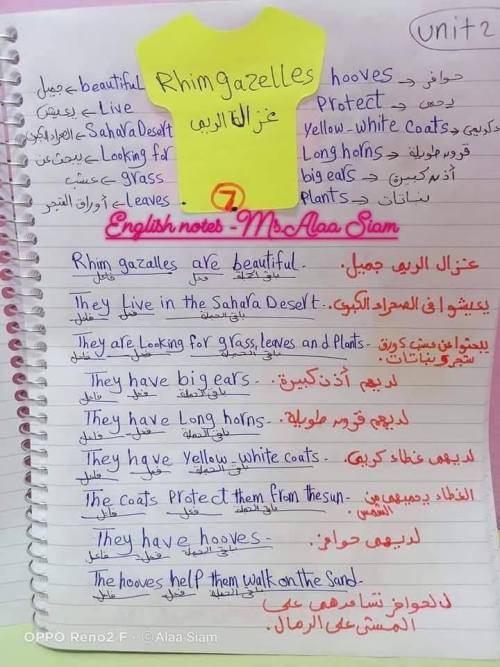 unit 2
beautiful ← جميل Rhim gazelles hooves → حوافر
Live ← يعيش غزال الريم Protect → يحمى
Sahara Desert ← الصحراء الكبرى Yellow-white coats → كريمى
Looking for ← يبحث عن Long horns → قرون طويلة
grass ← عشب big ears → أذن كبيرة
leaves ← أوراق الشجر 7. Plants → نباتات
English notes -Ms.Alaa Siam
Rhim gazalles are beautiful. غزال الريم جميل.
فاعل فعل باقى الجملة
They Live in the Sahara Desert. يعيشوا فى الصحراء الكبرى
فاعل فعل باقى الجملة
They are Looking for grass, leaves and Plants. يبحثوا عن عشب وورق
فاعل فعل باقى الجملة شجر ونباتات.
They have big ears. لديهم أذن كبيرة.
فاعل فعل باقى الجملة
They have Long horns. لديهم قرون طويلة.
فاعل فعل باقى الجملة
They have Yellow-white coats. لديهم غطاء كريمى.
فاعل فعل باقى الجملة
The coats Protect them from the sun. الغطاء يحميهم من
فاعل فعل باقى الجملة الشمس.
They have hooves. لديهم حوافر.
فاعل فعل باقى الجملة
The hooves help them walk on the Sand.
فاعل فعل باقى الجملة
الحوافر تساعدهم على
المشى على الرمال.
OPPO Reno2 F · ©Alaa Siam